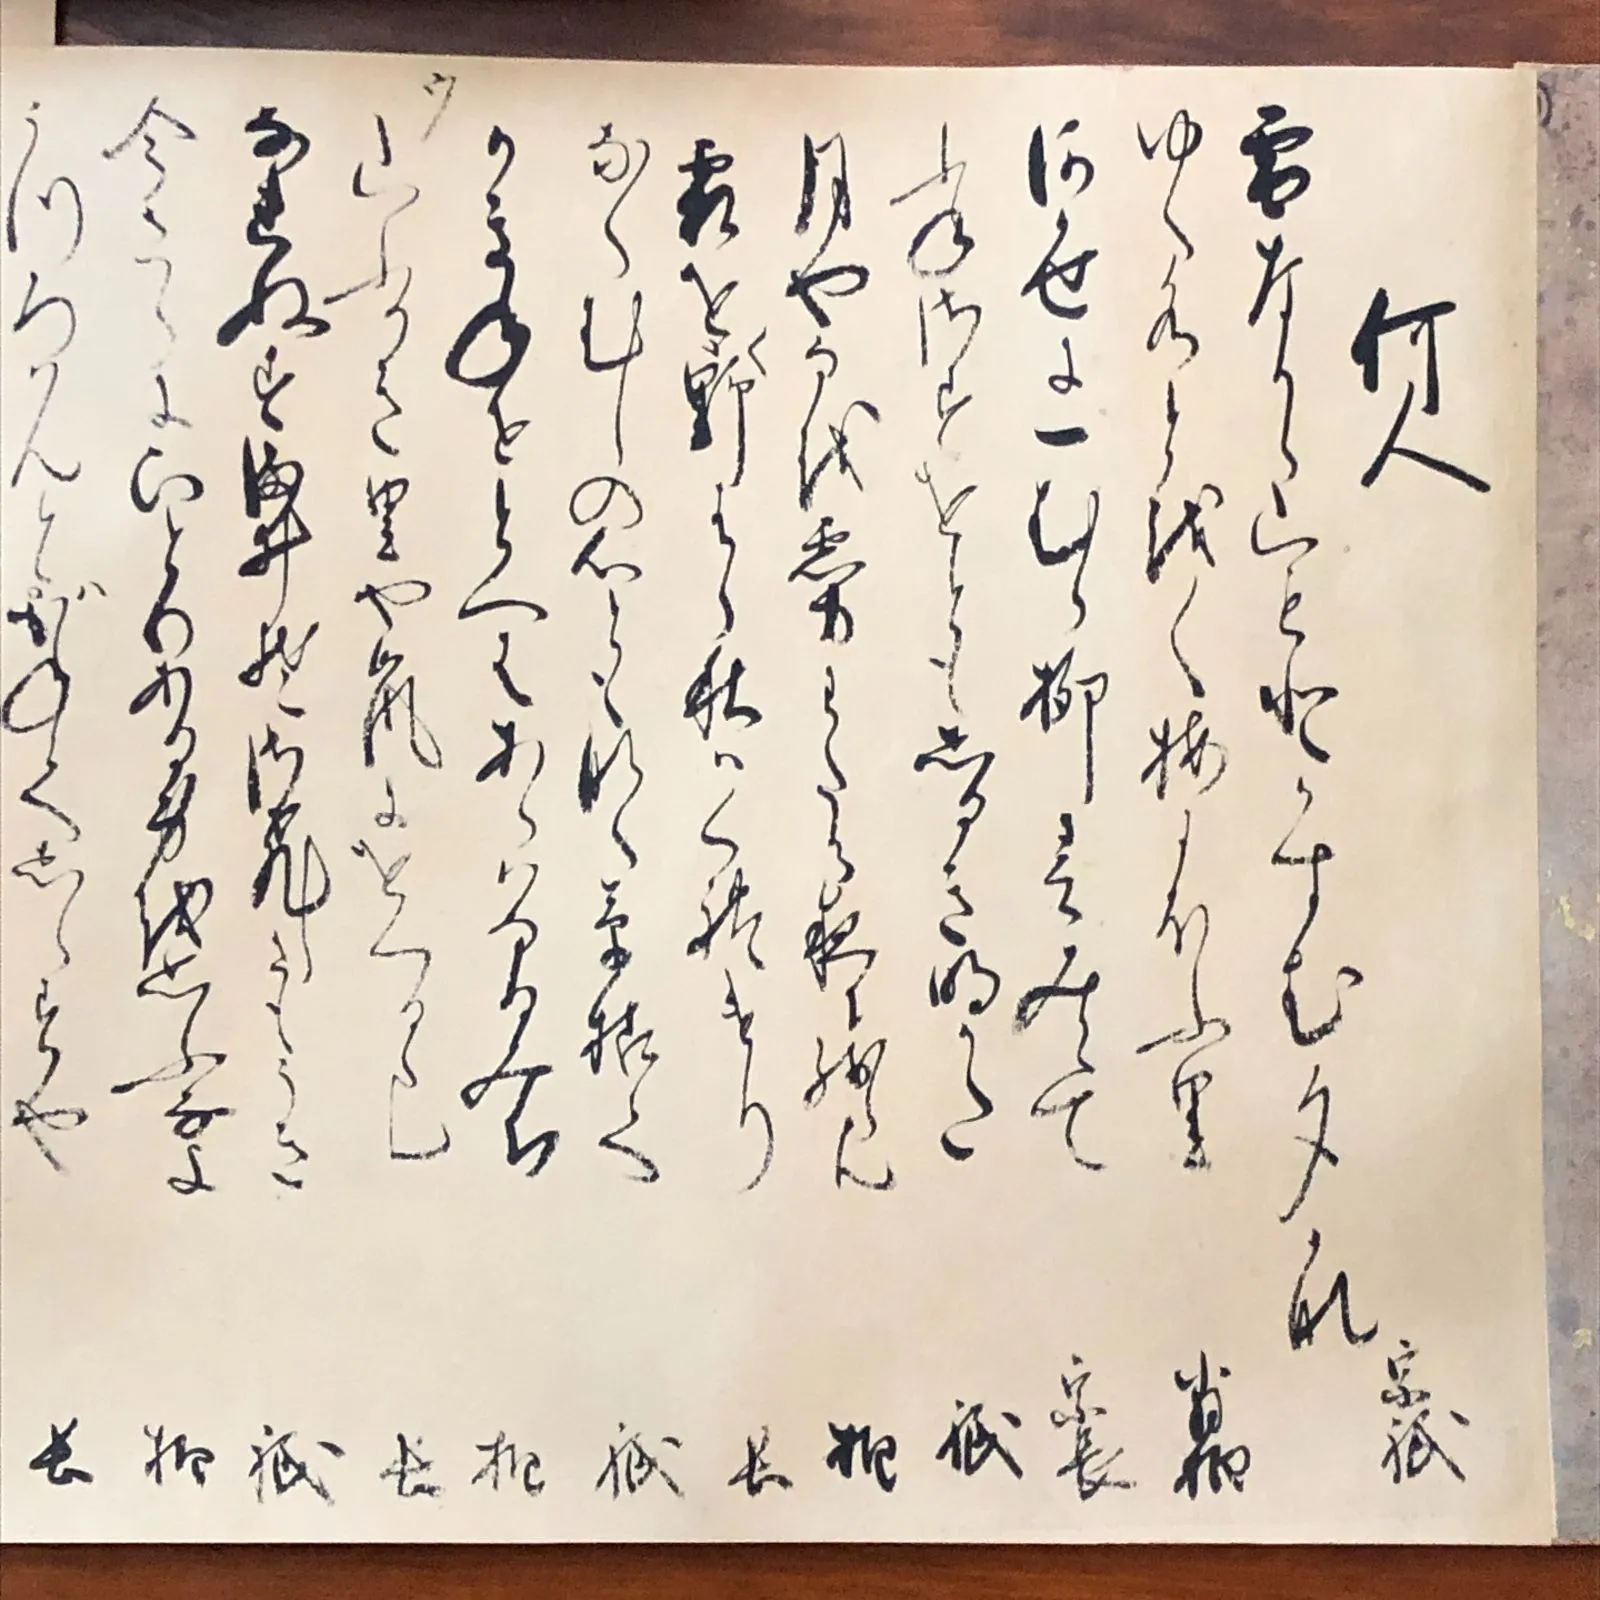 何人
雪なから山もとかすむ夕かな 宗祇
ゆく水とをく梅にほふ里 肖柏
河かせに一むら柳春みえて 宗長
舟さすをともしるき明かた 祇
月やなを霧わたる夜に残らん 柏
霜をく野はら秋はくれけり 長
なくむしの心ともなく草枯て 祇
かきねをとへはあらはなるみち 柏
ウ
山ふかき里や嵐にをくるらむ 長
なれぬすま井そさひしさもうき 祇
今さらにひとりある身を思ふなよ 柏
うつろはんとはかねてしらすや 長